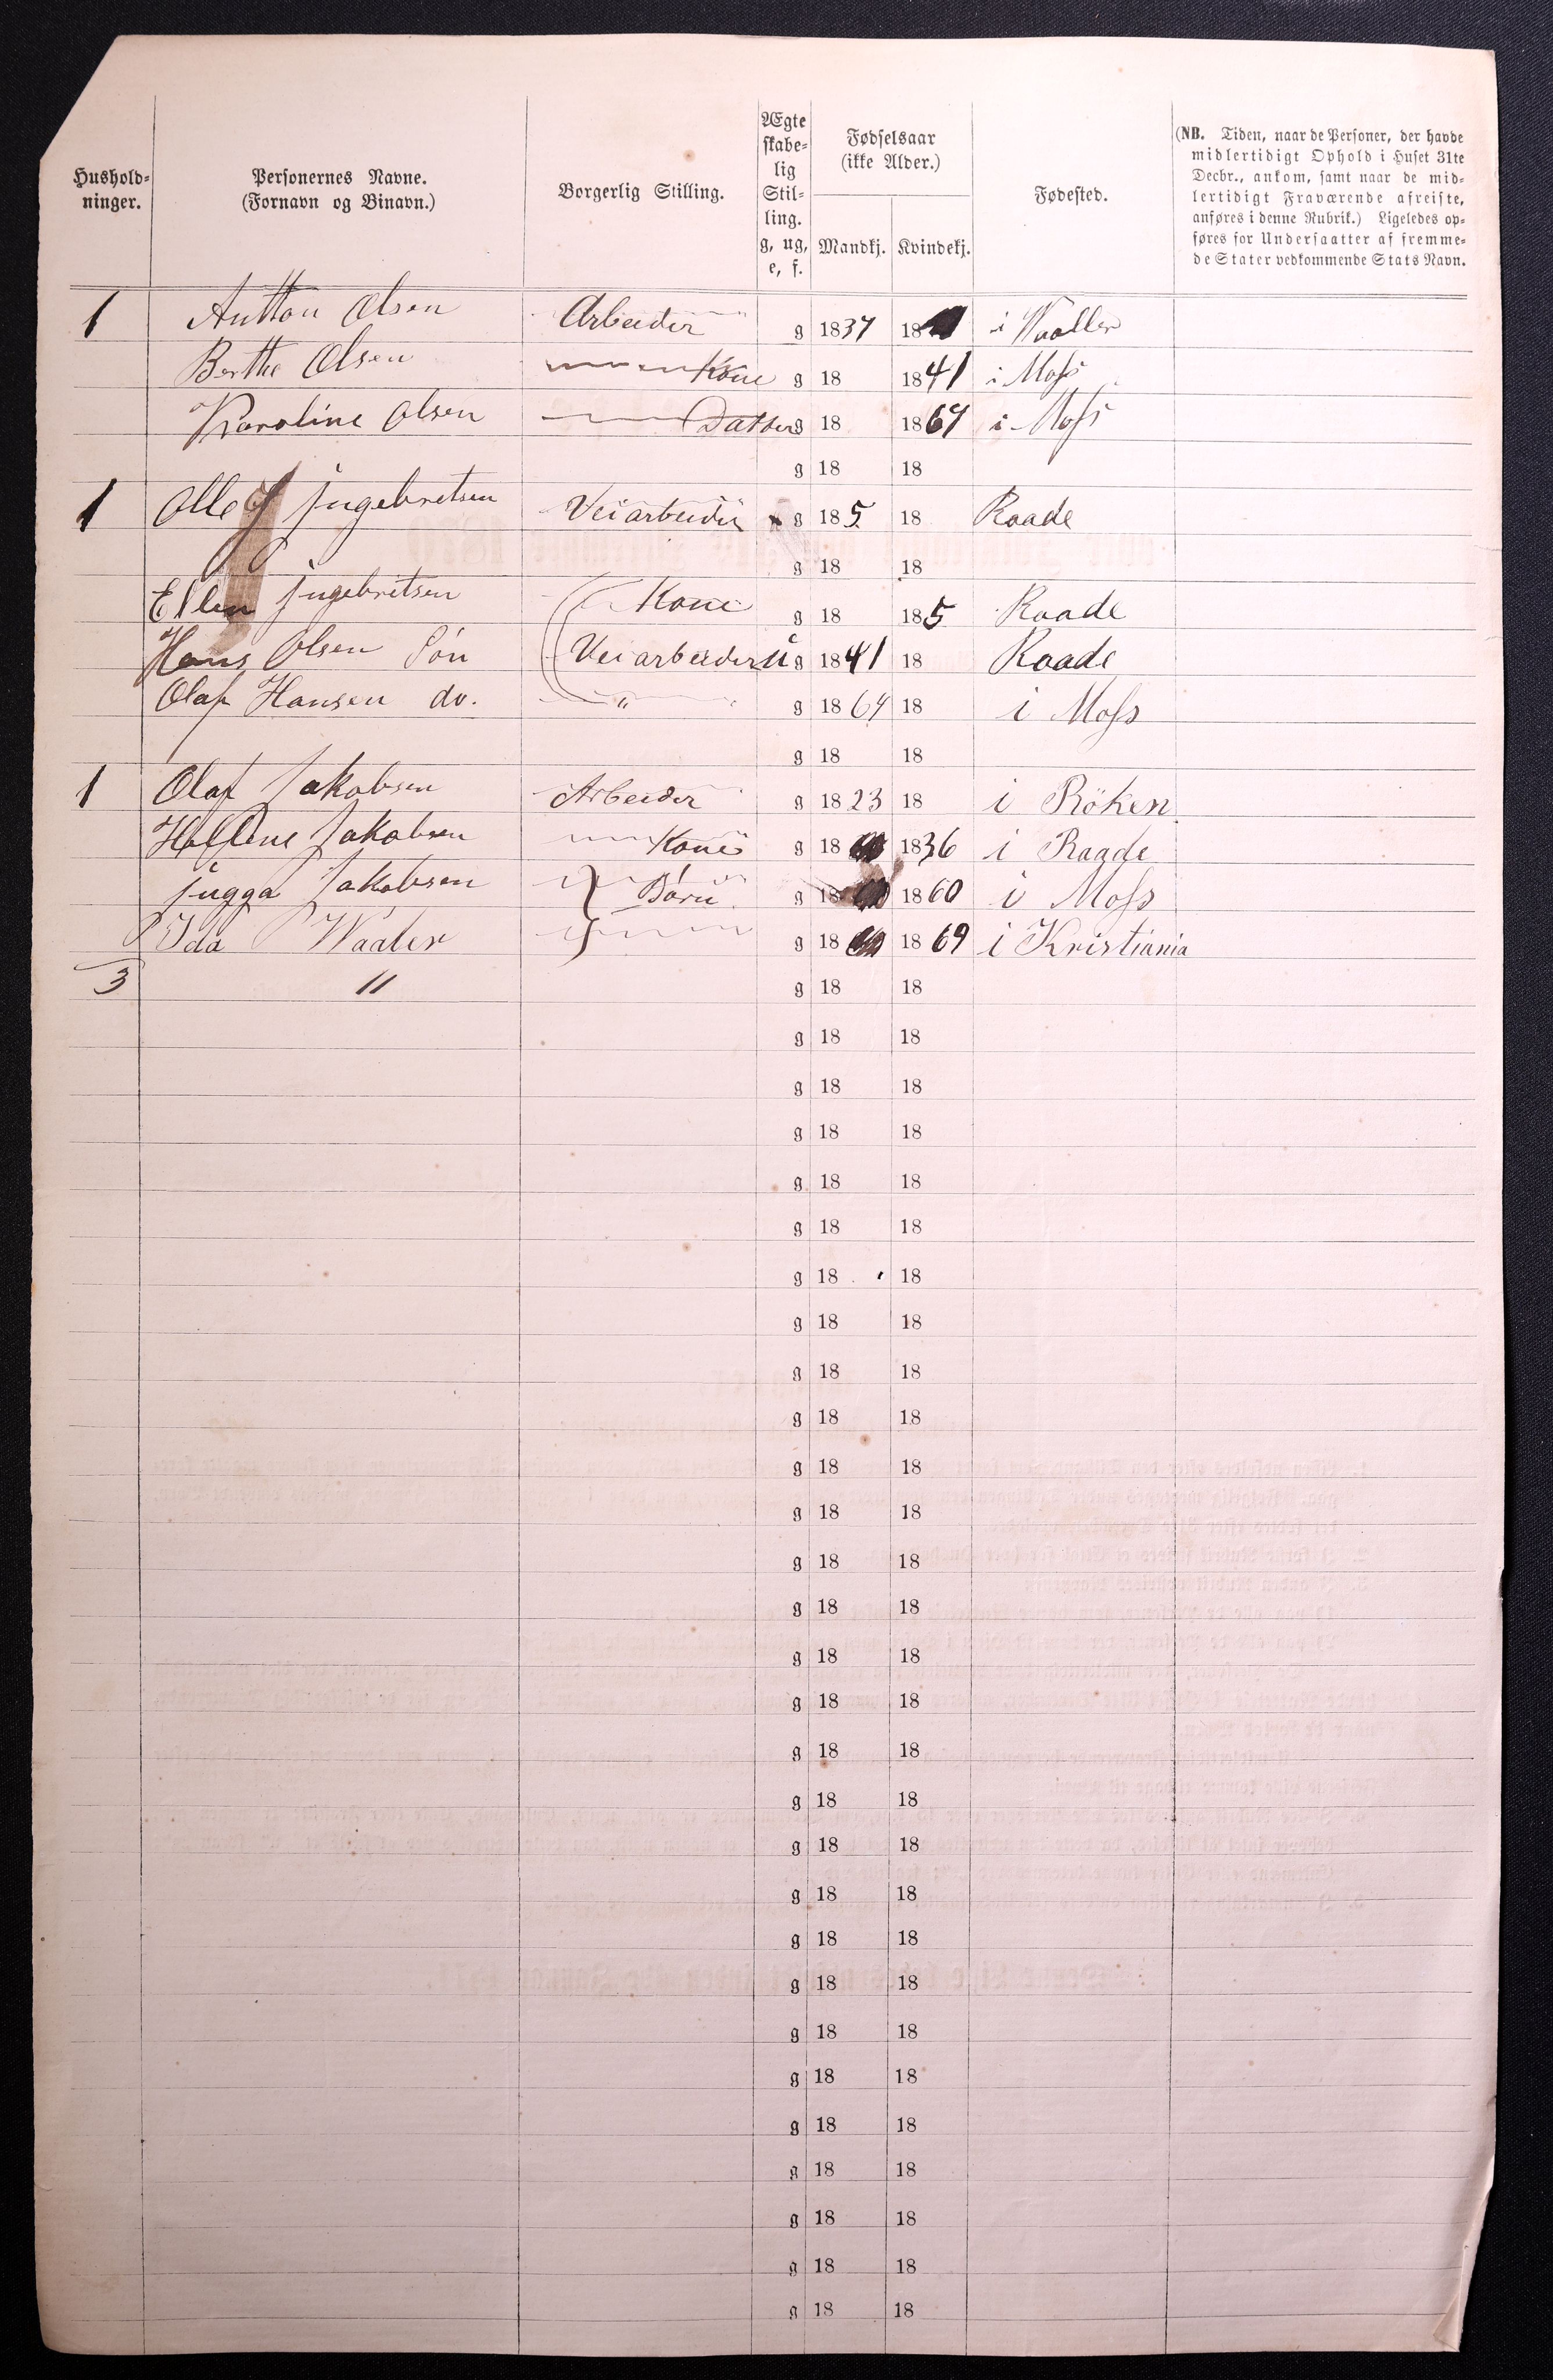 Hushold-ninger. Personernes Navne. (Fornavn og Binavn.) Borgerlig Stilling. Ægteskabe-lig Stil-ling. g, ug, e, f. Fødselsaar (ikke Alder.) Mandkj. Kvindekj. Fødested. (NB. Tiden, naar de Personer, der havde midlertidigt Ophold i Huset 31te Decbr., ankom, samt naar de mid-lertidigt Fraværende afreiste, anføres i denne Rubrik.) Ligeledes op-føres for Undersaatter af fremme-de Stater vedkommende Stats Navn.
1 Antton Olsen Arbeider g 1837 18 i Vaaller
Berthe Olsen Kone g 18 1841 i Moss
Karoline Olsen Datter g 18 1867 i Moss
g 18 18
1 Olle jngebretsen Veiarbeider g 185 18 Raade
g 18 18
Ellen jngebritsen Kone g 18 185 Raade
Hans Olsen Sön Veiarbeider ug 1841 18 Raade
Olaf Hansen do. " g 1864 18 i Moss
g 18 18
1 Olaf Jakobsen Arbeider g 1823 18 i Röken
Hellene Jakobsen Kone g 18 1836 i Raade
jngga Jakobsen Börn g 18 1860 i Moss
Ida Waaler g 18 1869 i Kristiania
3 11 g 18 18
g 18 18
g 18 18
g 18 18
g 18 18
g 18 18
g 18 18
g 18 18
g 18 18
g 18 18
g 18 18
g 18 18
g 18 18
g 18 18
g 18 18
g 18 18
g 18 18
g 18 18
g 18 18
g 18 18
g 18 18
g 18 18
g 18 18
g 18 18
g 18 18
g 18 18
g 18 18
g 18 18
g 18 18
g 18 18